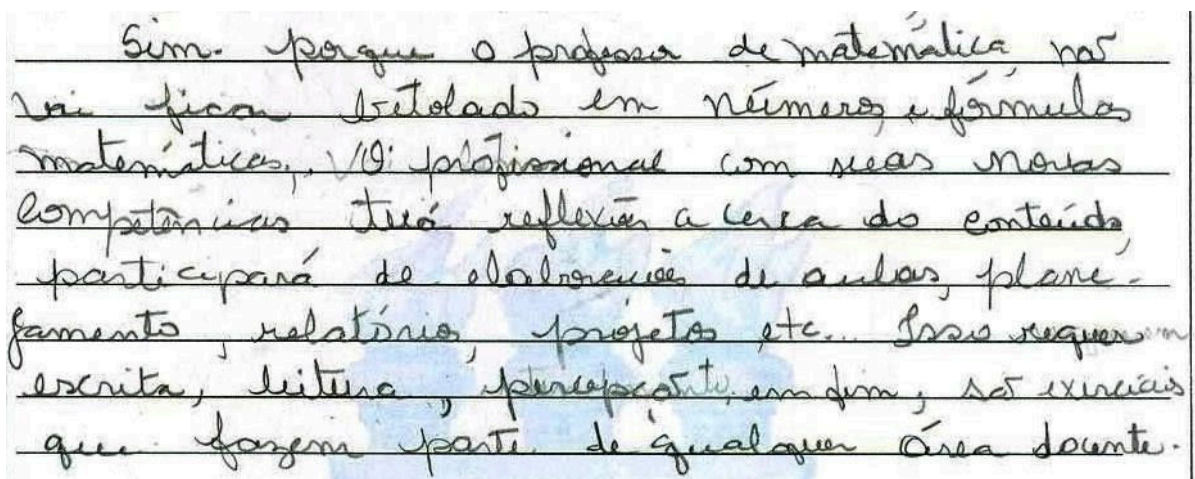 Sim. porque o professor de matemática não
vai ficar bitolado em números e fórmulas
matemáticas,. O profissional com suas novas
competências terá reflexões a cerca do conteúdo,
participará de elaborações de aulas, plane-
jamento, relatórios, projetos etc... Isso requer
escrita, leitura, percepção, em fim, são exercícios
que fazem parte de qualquer área docente.